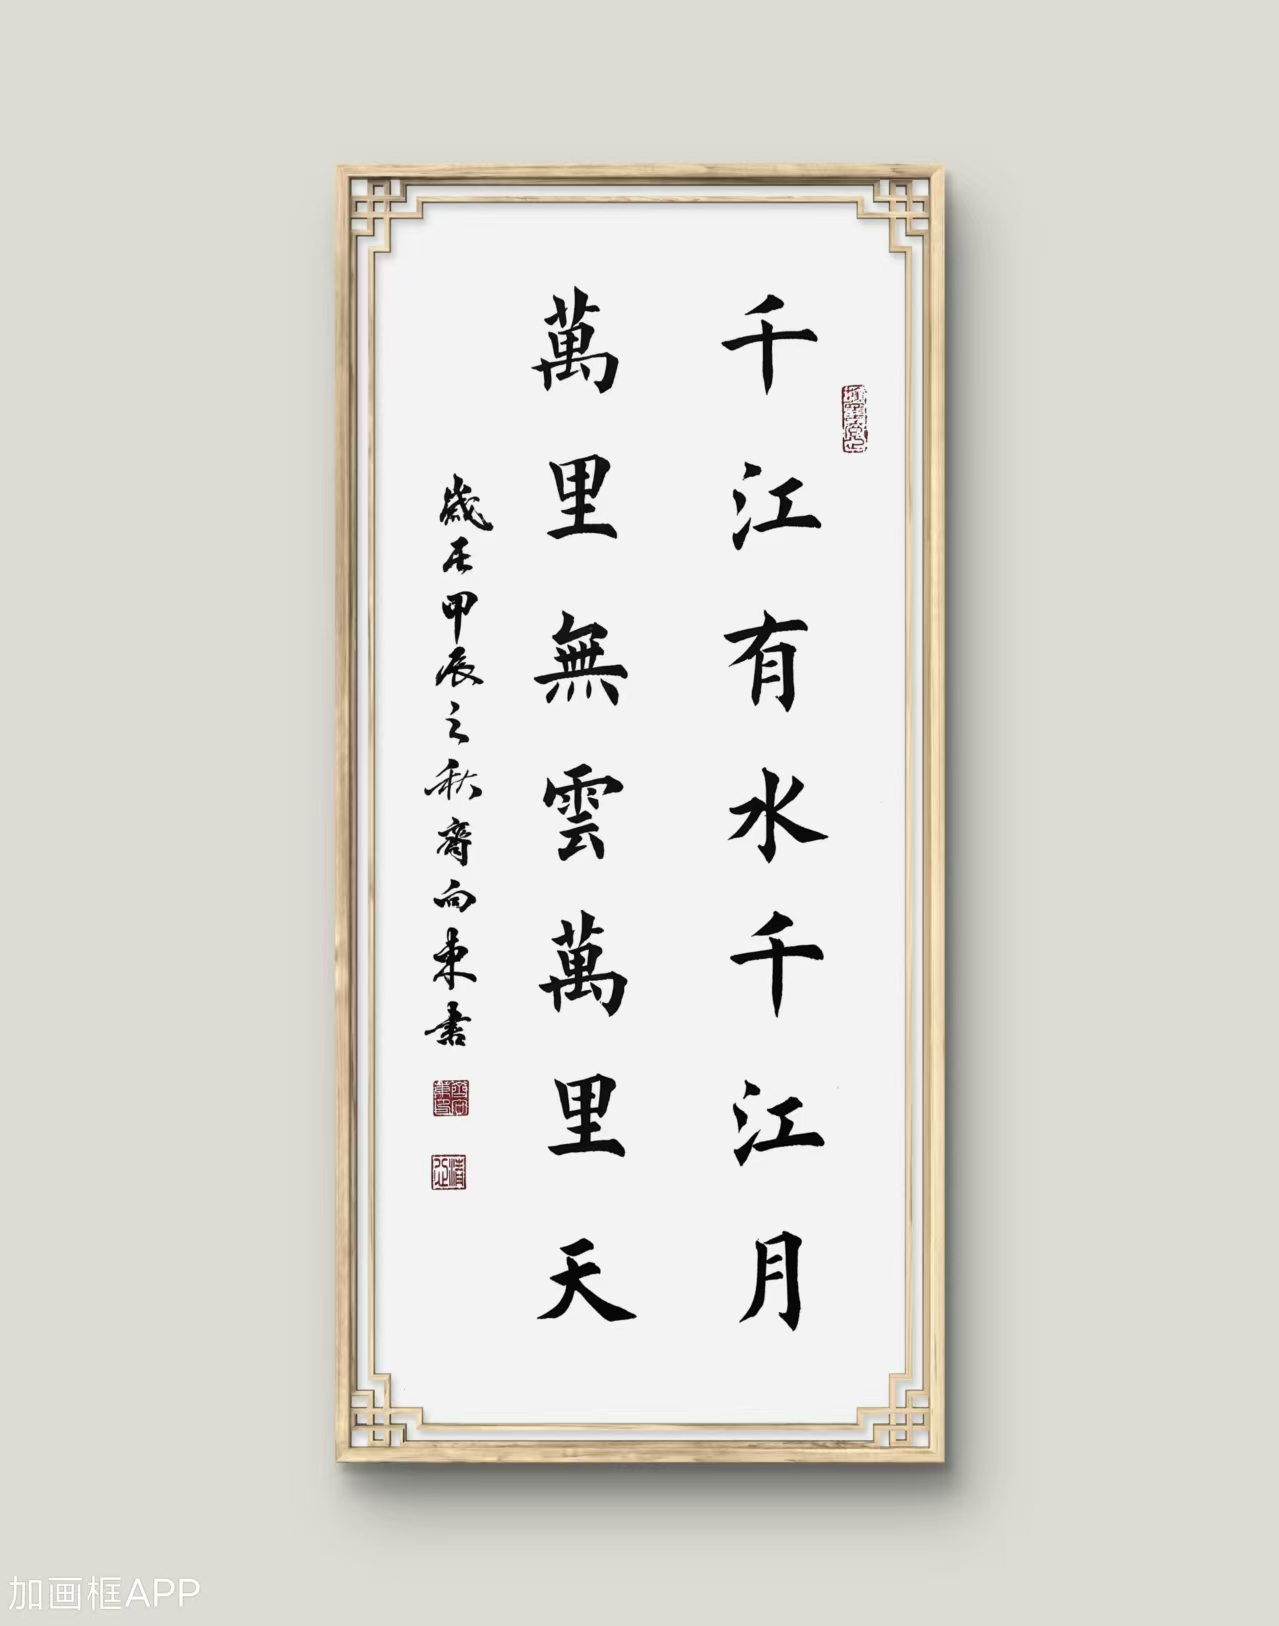 千江有水千江月
萬里無雲萬里天
歲在甲辰之秋齊向東書
加画框APP